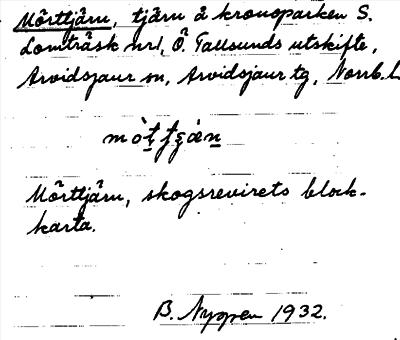 Mörttjärn, tjärn å kronoparken S.
Lomträsk nr 1, Ö. Tallsunds utskifte,
Arvidsjaur sn, Arvidsjaur tg, Norrb. l.
Mörttjärn, skogsrevirets block-
karta.
B. Nygren 1932.